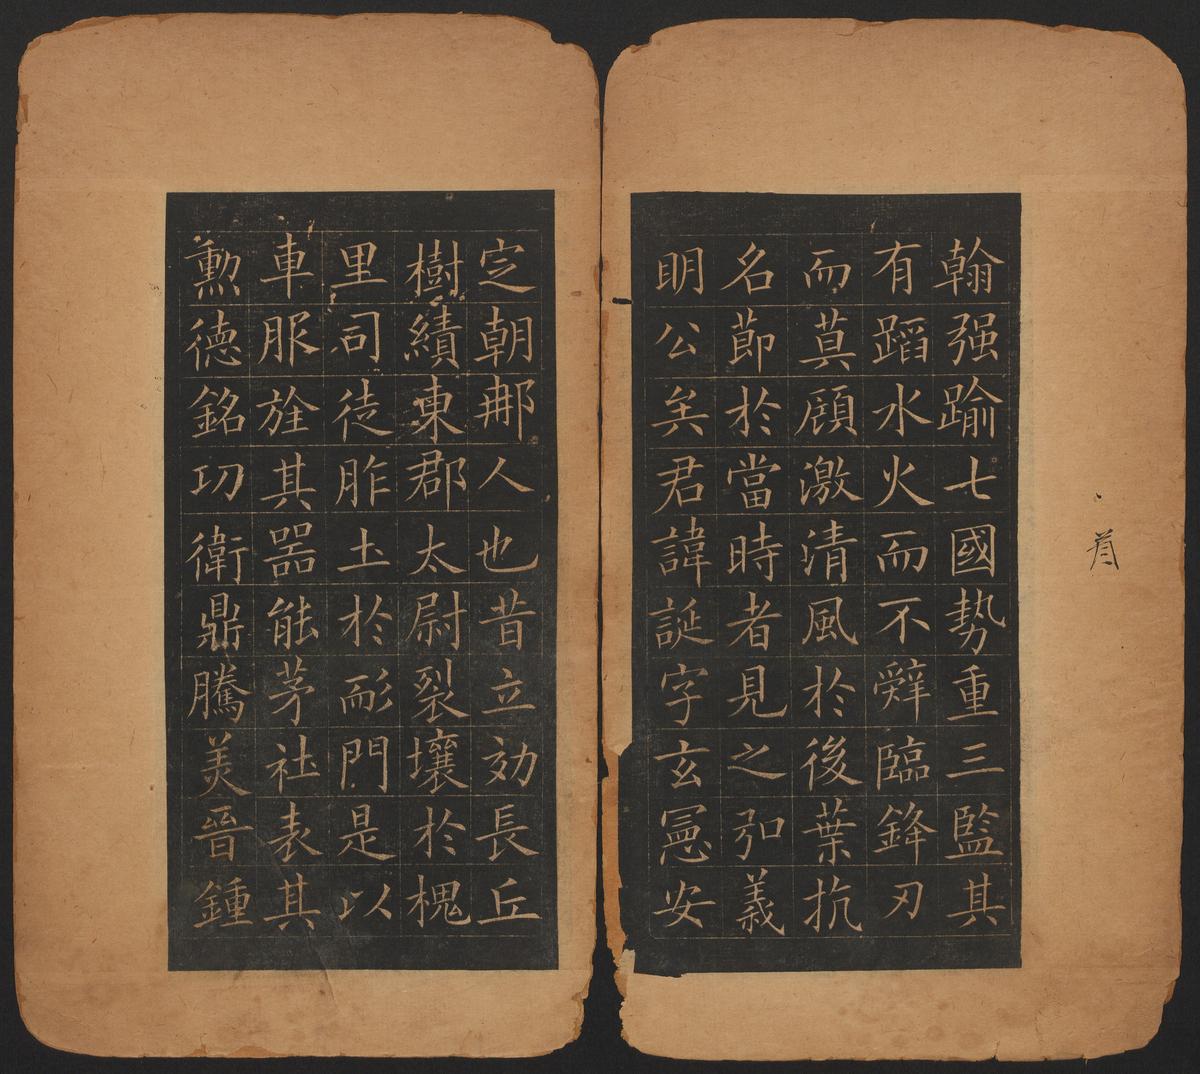 翰强踰七國勢重三監其
有蹈水火而不辭臨鋒刃
而莫顧激清風於後葉抗
名節於當時者見之弘義
明公矣君諱誕字玄憲安
定朝那人也昔立効長丘
樹績東郡太尉裂壤於槐
里司徒胙土於耏門是以
車服旌其器能茅社表其
勲德銘功衛鼎騰美晉鍾